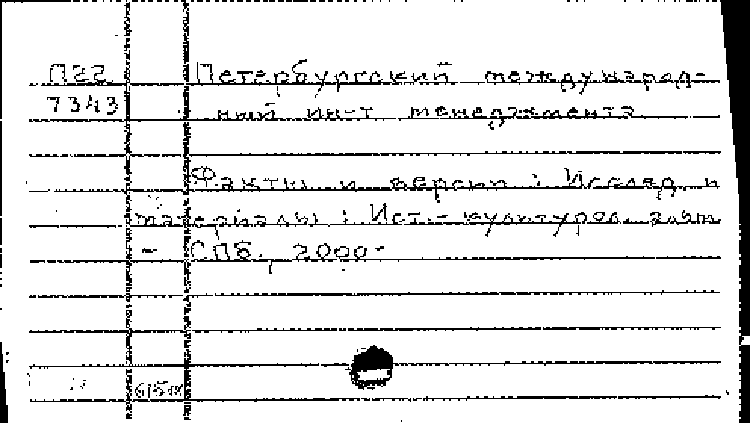 П22 Петербургский международ-
7343 ный ин-т менеджмента
Факты и версии : Исслед. и
материалы : Ист.-культурол. альм.
- СПб., 2000-